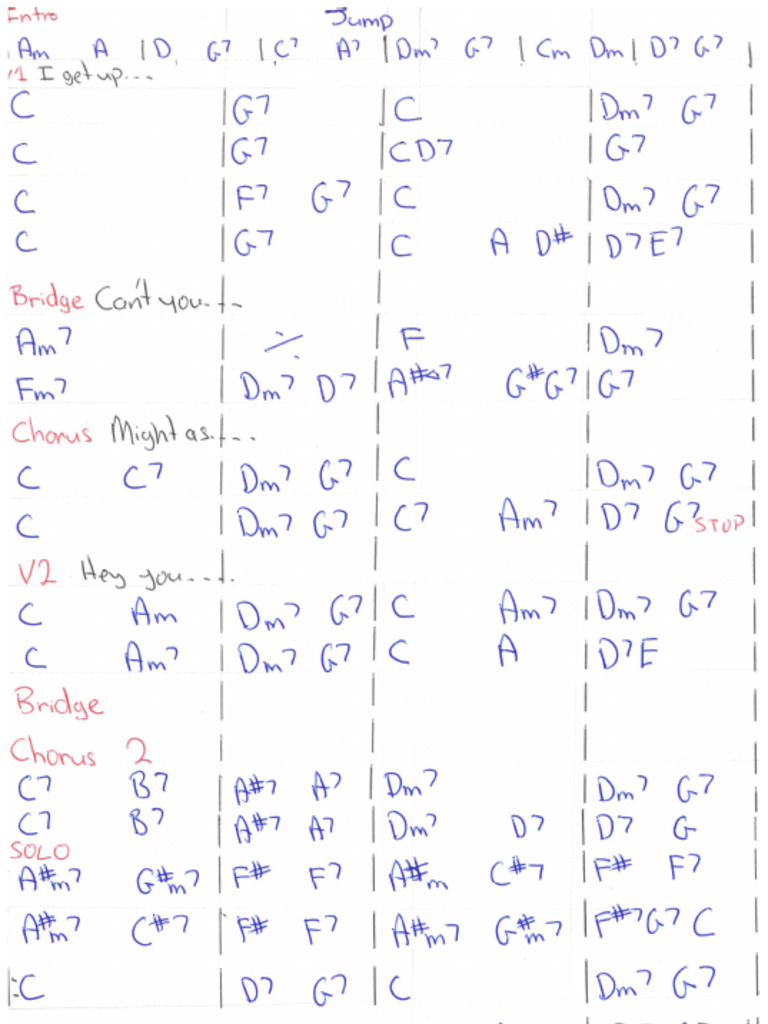 Entro Jump
Am A | D G7 | C7 A7 | Dm7 G7 | Cm Dm | D7 G7 |
V1 I get up...
C | G7 | C | Dm7 G7 |
C | G7 | C D7 | G7 |
C | F7 G7 | C | Dm7 G7 |
C | G7 | C A D# | D7 E7 |
Bridge Can't you....
Am7 | ٪ | F | Dm7 |
Fm7 | Dm7 D7 | A#7 G# G7 | G7 |
Chorus Might as....
C C7 | Dm7 G7 | C | Dm7 G7 |
C | Dm7 G7 | C7 Am7 | D7 G7 STOP |
V2 Hey you....
C Am | Dm7 G7 | C Am7 | Dm7 G7 |
C Am7 | Dm7 G7 | C A | D7 E |
Bridge
Chorus 2
C7 B7 | A#7 A7 | Dm7 | Dm7 G7 |
C7 B7 | A#7 A7 | Dm7 D7 | D7 G |
SOLO
A#m7 G#m7 | F# F7 | A#m C#7 | F# F7
A#m7 C#7 | F# F7 | A#m7 G#m7 | F#7 G7 C |
|: C | D7 G7 | C | Dm7 G7 |